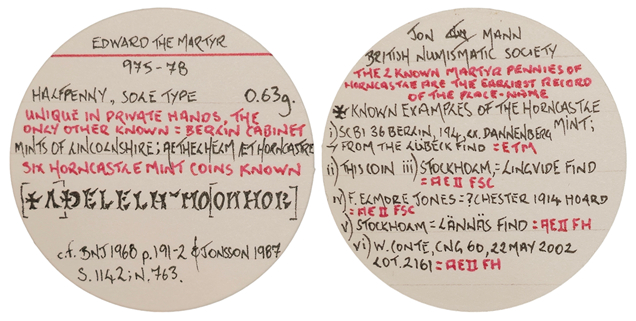 EDWARD THE MARTYR
975-78
HALFPENNY, SOLE TYPE 0.63g.
UNIQUE IN PRIVATE HANDS, THE
ONLY OTHER KNOWN = BERLIN CABINET
MINTS OF LINCOLNSHIRE; AETHELHELM ÆT HORNCASTRE
SIX HORNCASTLE MINT COINS KNOWN
c.f. BNJ 1968 p.191-2 & JONSSON 1987
S.1142; N.763.
JON MANN
BRITISH NUMISMATIC SOCIETY
THE 2 KNOWN MARTYR PENNIES OF
HORNCASTLE ARE THE EARLIEST RECORD
OF THE PLACE-NAME
* KNOWN EXAMPLES OF THE HORNCASTLE
MINT;
i) SCBI 36 BERLIN, 194, ex. DANNENBERG
FROM THE LÜBECK FIND = ETM
ii) THIS COIN iii) STOCKHOLM, = LINGVIDE FIND
= AE II FSC
iv) F. ELMORE JONES = ? CHESTER 1914 HOARD
= AE II FSC
v) STOCKHOLM = LÄNNÄS FIND = AE II FH
vi) W. CONTE, CNG 60, 22 MAY 2002
LOT. 2161 = AE II FH